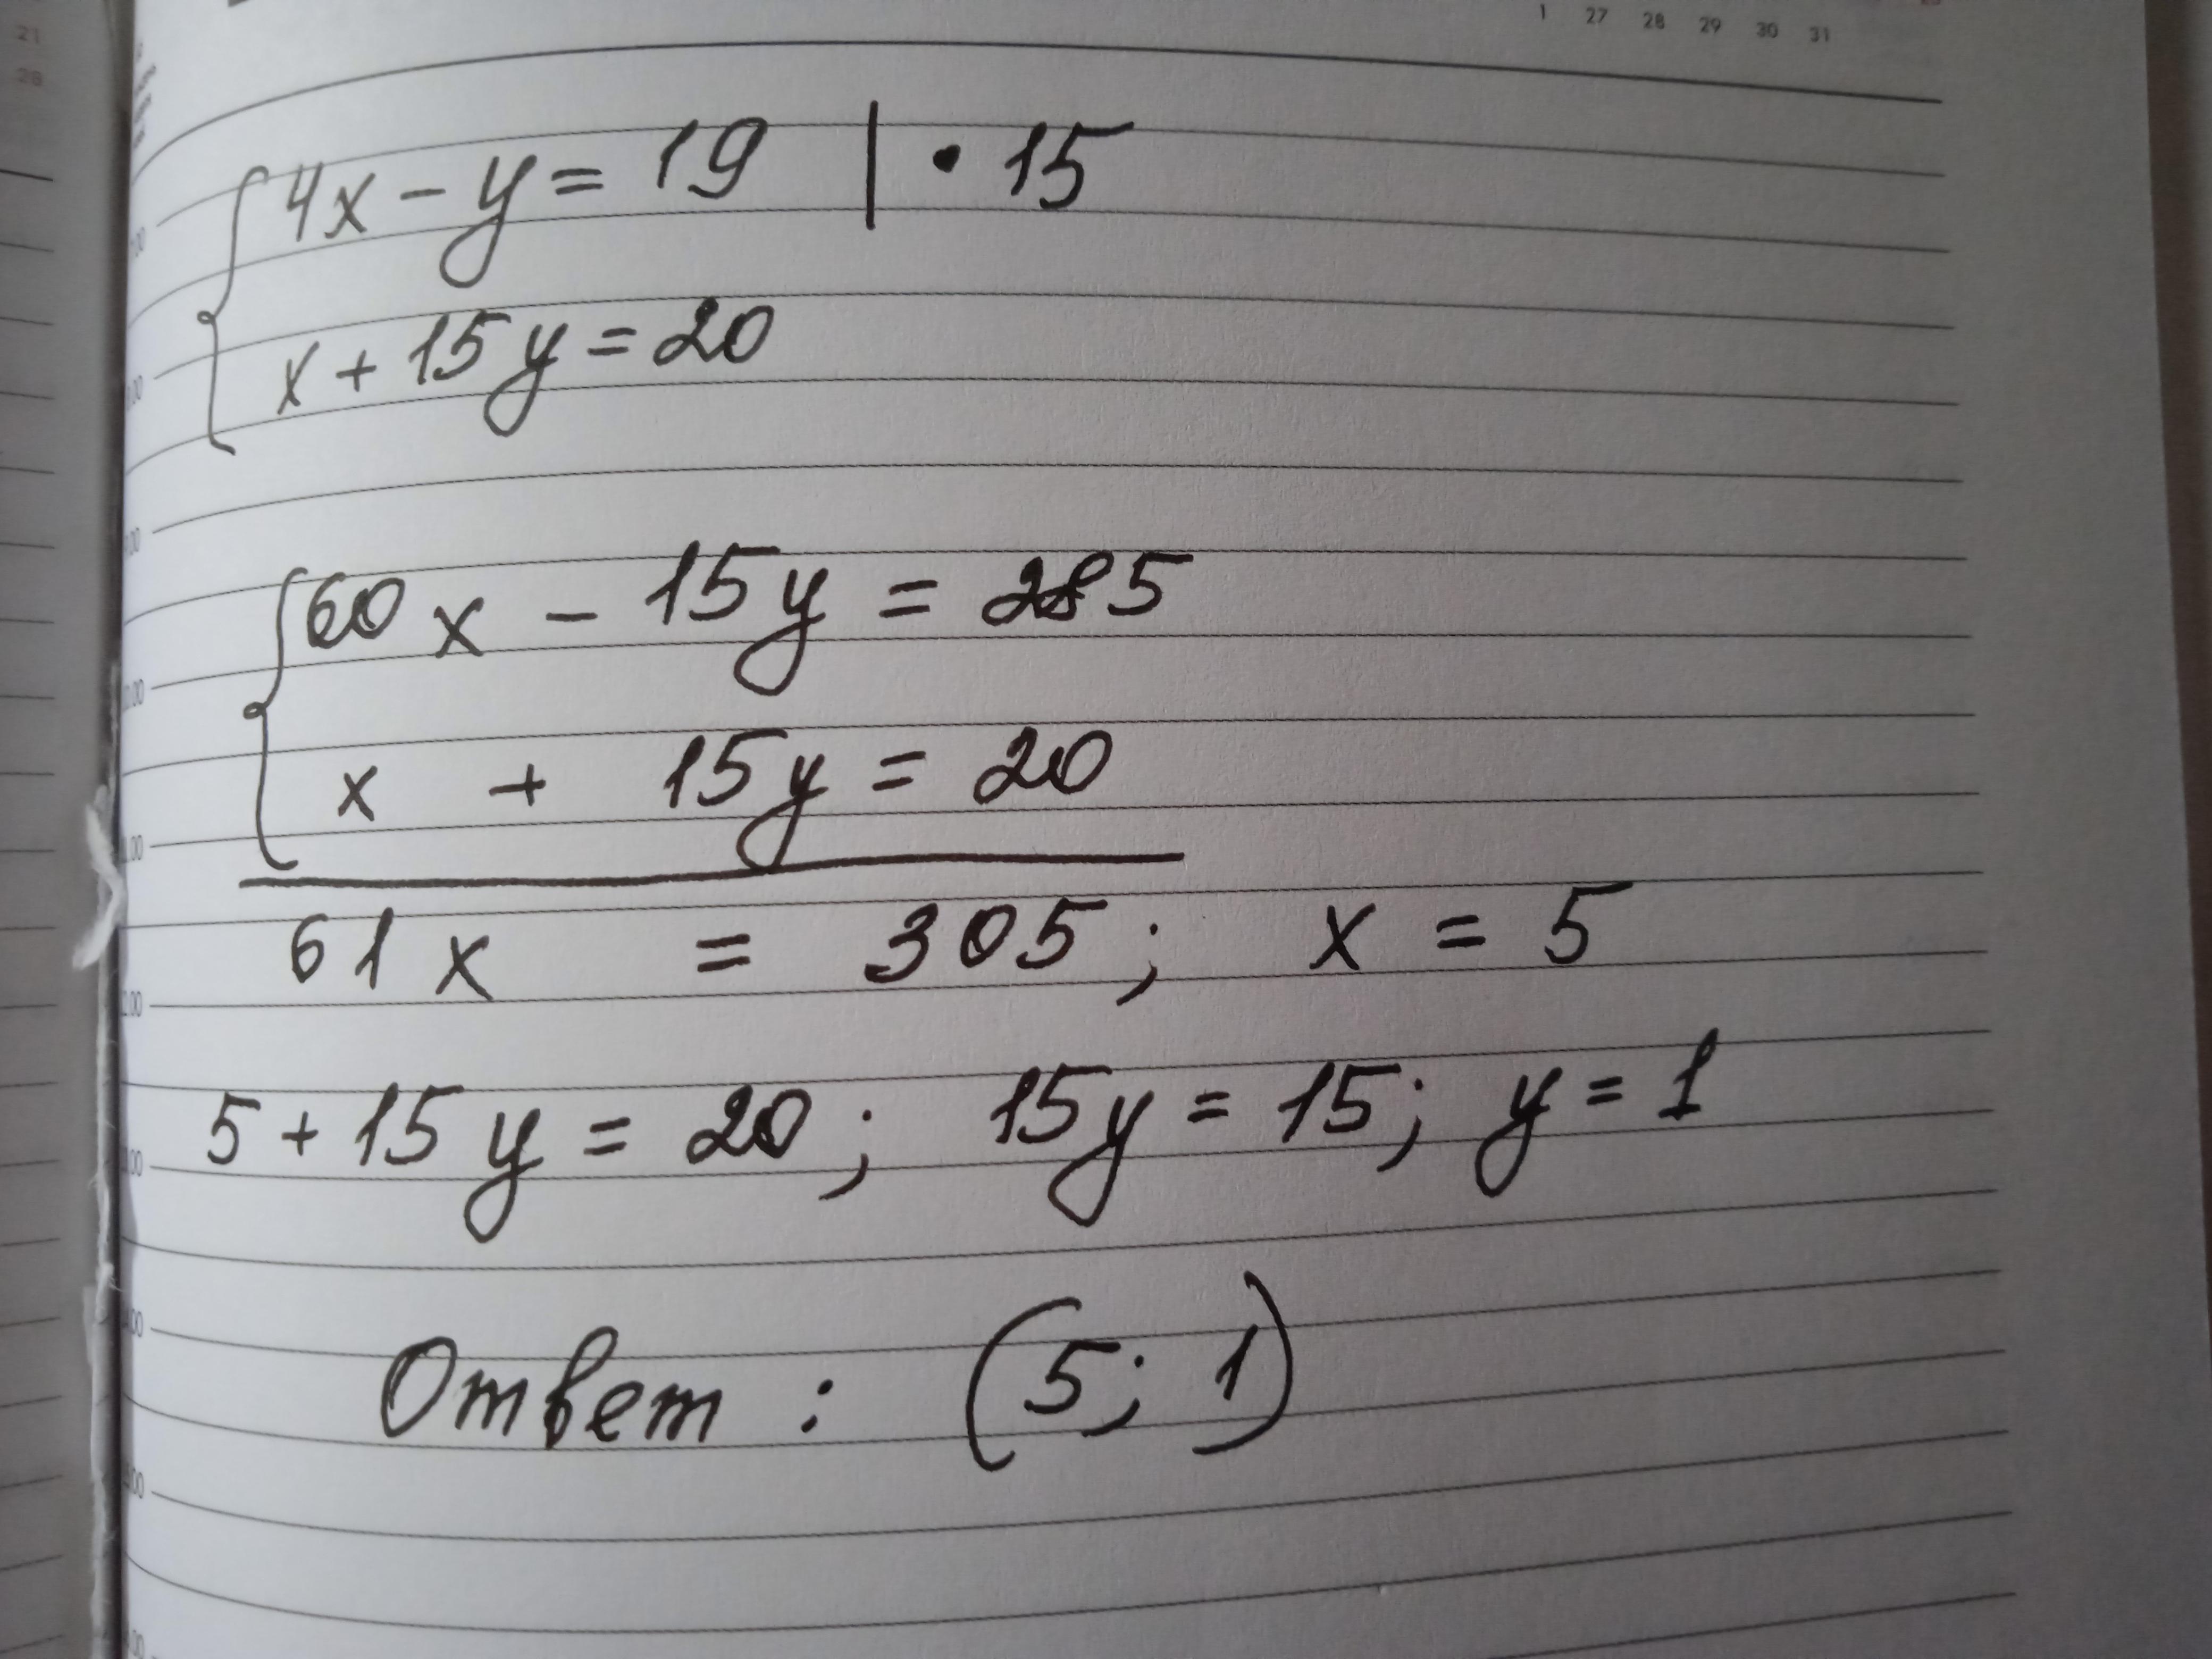 1 27 28 29 30 31
21
28
4x - y = 19 | • 15
x + 15y = 20
60x - 15y = 285
x + 15y = 20
61x = 305; x = 5
5 + 15y = 20; 15y = 15; y = 1
Ответ: (5; 1)